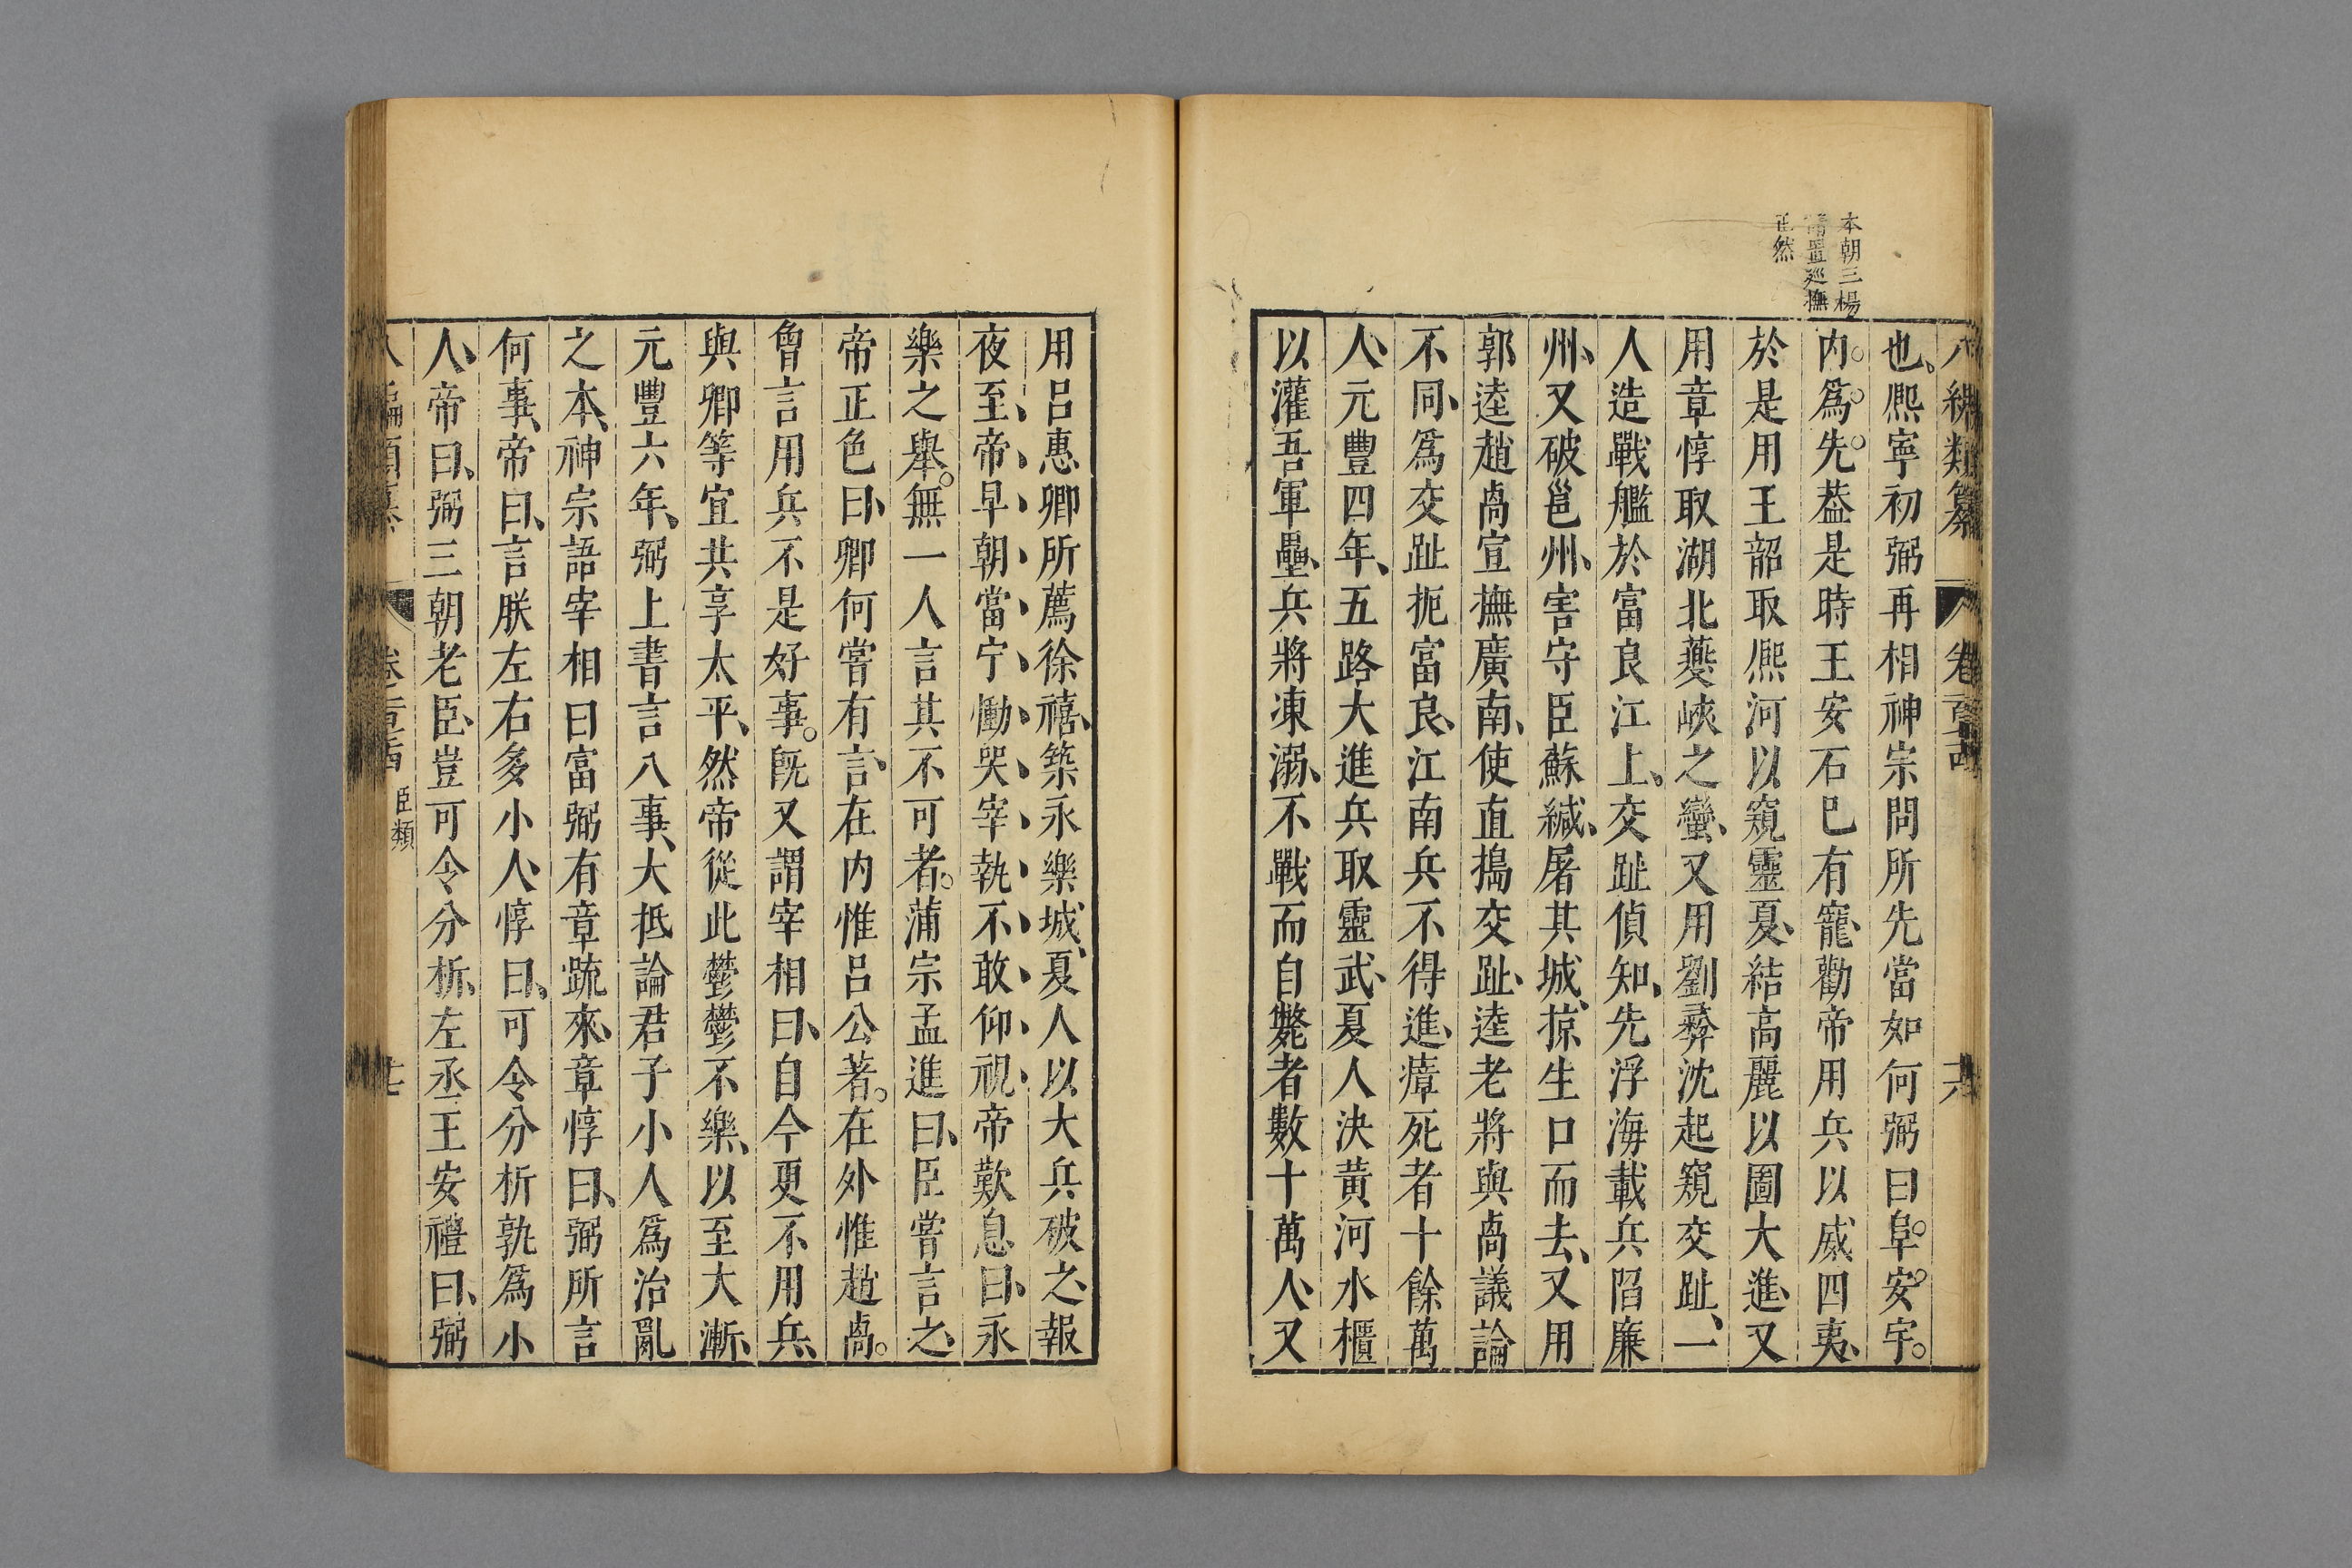 本朝三楊
請置廵撫
正然
八編類纂 卷一百五十四 十六
也熈寧初弼再相神宗問所先當如何弼曰阜安宇
内爲先葢是時王安石巳有寵勸帝用兵以威四夷
於是用王韶取熈河以窺靈夏結高麗以圖大進又
用章惇取湖北䕫峽之蠻又用劉彛沈起窺交趾一
人造戰艦於富良江上交趾偵知先浮海載兵陷廉
州又破邕州害守臣蘇緘屠其城掠生口而去又用
郭逵趙卨宣撫廣南使直搗交趾逵老將與卨議論
不同爲交趾扼富良江南兵不得進瘴死者十餘萬
人元豐四年五路大進兵取靈武夏人決黃河水櫃
以灌吾軍壘兵將凍溺不戰而自斃者數十萬人又
用呂惠卿所薦徐禧築永樂城夏人以大兵破之報
夜至帝早朝當宁慟哭宰執不敢仰視帝歎息曰永
樂之舉無一人言其不可者蒲宗孟進曰臣嘗言之
帝正色曰卿何嘗有言在内惟呂公著在外惟趙卨
曾言用兵不是好事旣又謂宰相曰自今更不用兵
與卿等宜共享太平然帝從此鬱鬱不樂以至大漸
元豐六年弼上書言八事大抵論君子小人爲治亂
之本神宗語宰相曰富弼有章䟽來章惇曰弼所言
何事帝曰言朕左右多小人惇曰可令分析孰爲小
人帝曰弼三朝老臣豈可令分析左丞王安禮曰弼
八編類纂 卷一百五十四 臣類 十七